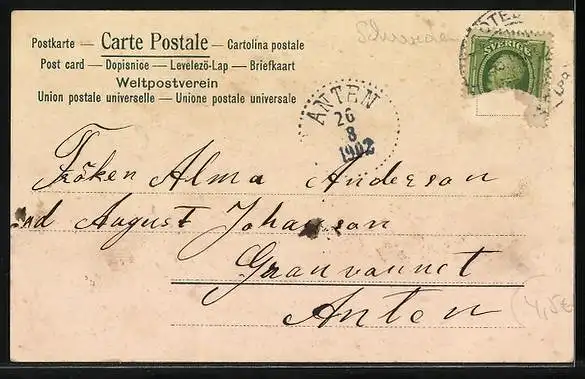 Postkarte — Carte Postale — Cartolina postale
Post card — Dopisnice — Levelező-Lap — Briefkaart
Weltpostverein
Union postale universelle — Unione postale universale
SVERIGE
ANTEN
26
8
1902
Fröken Alma Anderson
ad August Johanson
Granvannet
Anten
4,5€